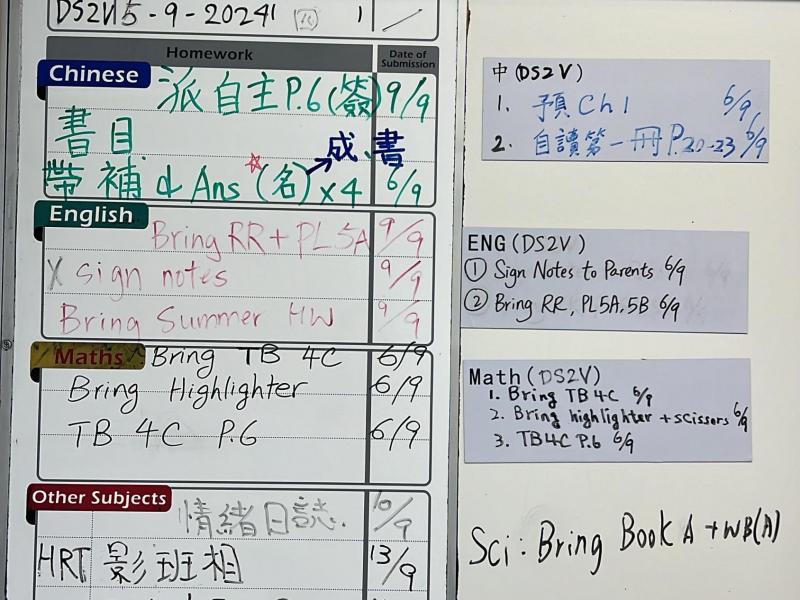 DS2V 5-9-2024
Homework
Date of Submission
Chinese
派自主P.6(簽) 9/9
書目
成.書
帶補 & Ans (名) x4 6/9
English
Bring RR + PL 5A 9/9
X sign notes 9/9
Bring Summer HW 9/9
Maths Bring TB 4C 6/9
Bring Highlighter 6/9
TB 4C P.6 6/9
Other Subjects
情緒日誌. 10/9
HRT 影班相 13/9
中 (DS2V)
1. 預 Ch 1 6/9
2. 自讀第一冊 P.20-23 6/9
ENG (DS2V)
① Sign Notes to Parents 6/9
② Bring RR, PL5A, 5B 6/9
Math (DS2V)
1. Bring TB 4C 6/9
2. Bring highlighter + scissors 6/9
3. TB4C P.6 6/9
Sci : Bring Book A + WB(A)